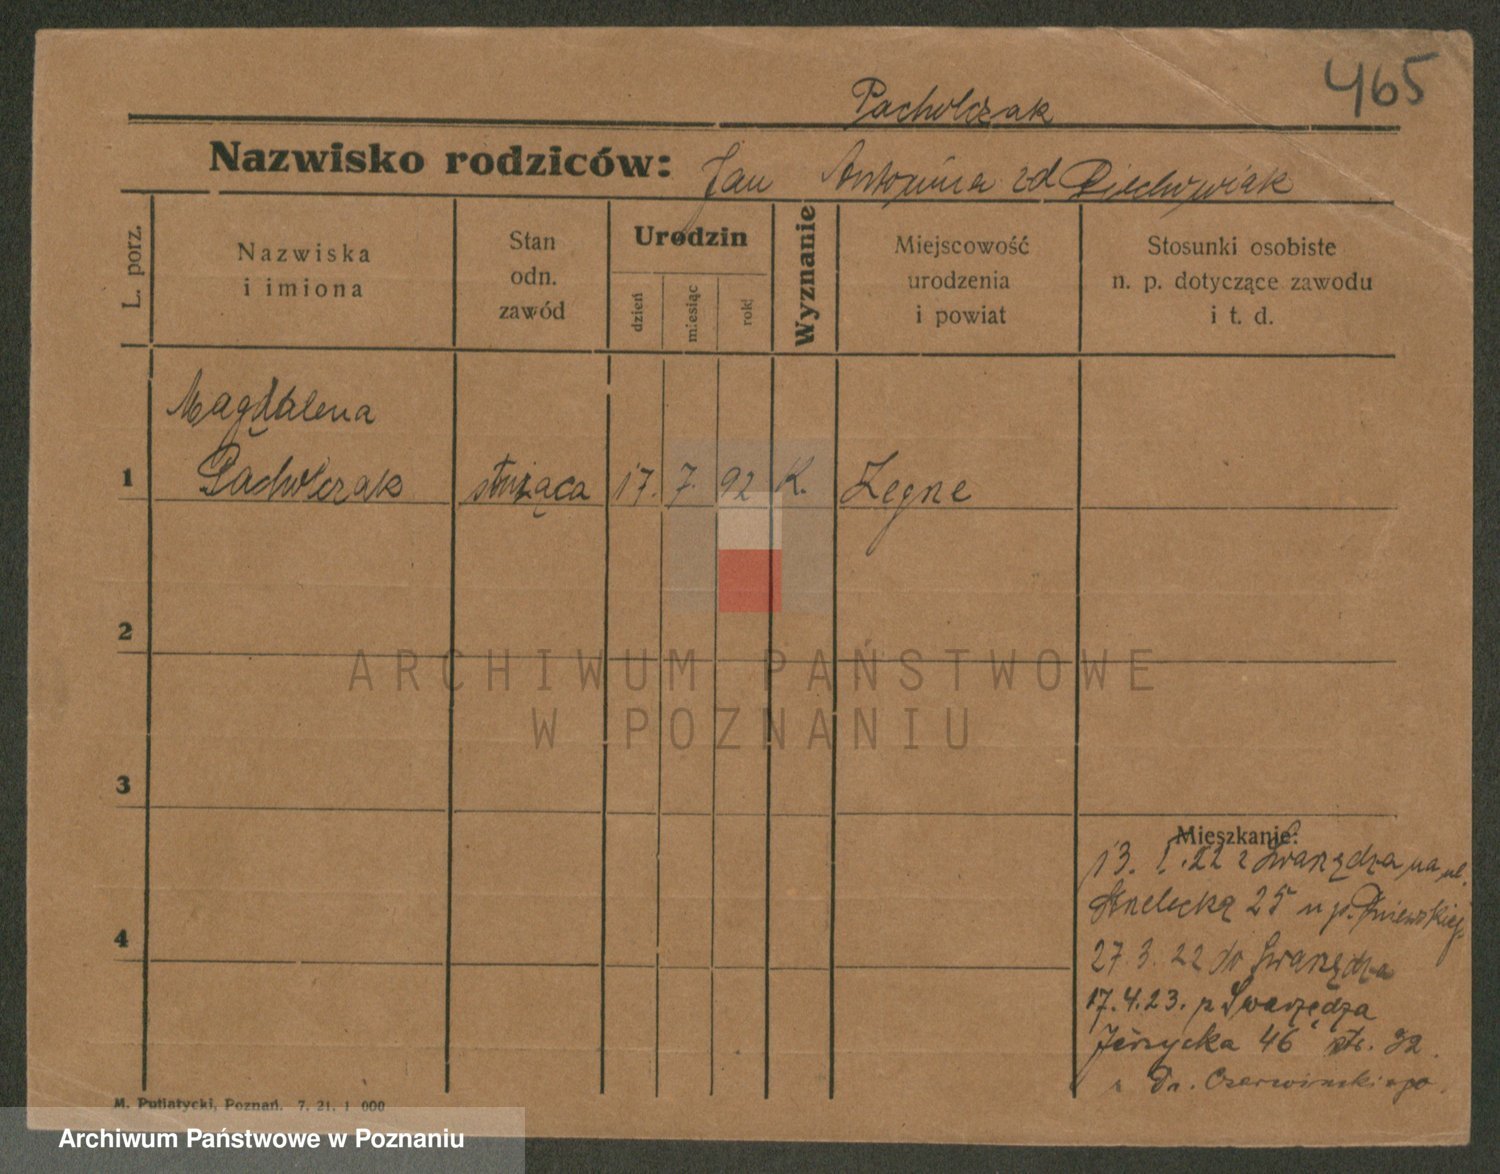 465
Pacholczak
Nazwisko rodziców: Jan Antonina zd Piechowiak
L. porz.
Nazwiska
i imiona
Stan
odn.
zawód
Urodzin
dzień
miesiąc
rok
Wyznanie
Miejscowość
urodzenia
i powiat
Stosunki osobiste
n. p. dotyczące zawodu
i t. d.
Magdalena
1 Pacholczak służąca 17. 7. 92 K. Zegne
2
3
4
Mieszkanie:
13. I. 22 z Swarzędza na ul.
Strzelecką 25 u p.
27 3. 22 do Swarzędza
17.4.23. z Swarzędza
Jeżycka 46 ptr. 32.
u Dr. Czerwińskiego.
M. Putiatycki, Poznań. 7. 21. 1 000
ARCHIWUM PAŃSTWOWE
W POZNANIU
Archiwum Państwowe w Poznaniu